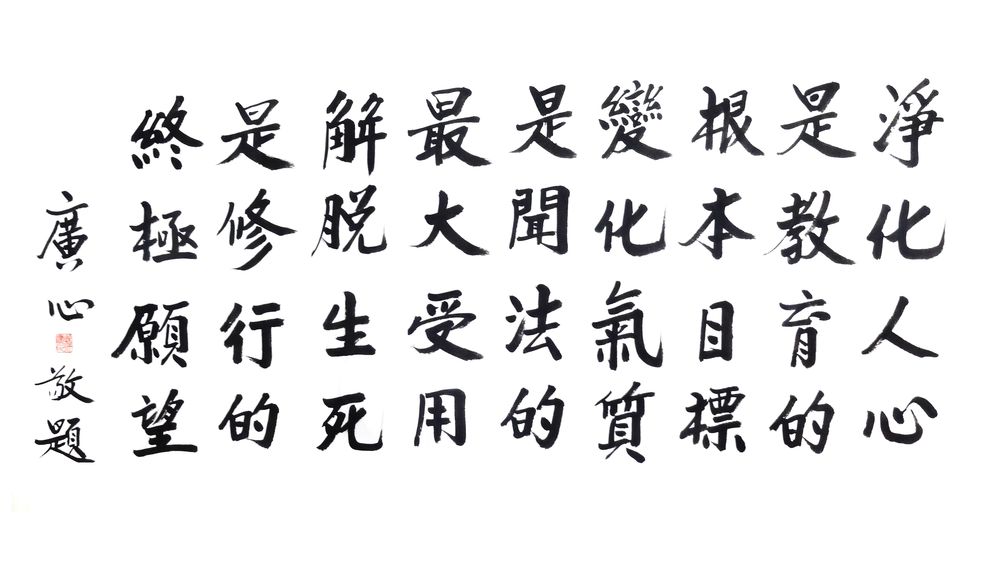 淨化人心
是教育的
根本目標
變化氣質
是聞法的
最大受用
解脱生死
是修行的
終極願望
廣心敬題